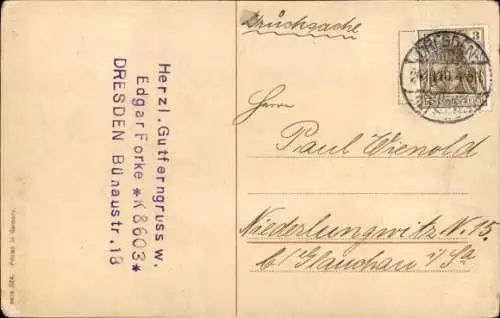 Drucksache
3
DRESDEN
Herrn
Paul Wienold
Niederlungwitz N. 15.
b/ Glauchau i/Sa
Herzl. Gutferngruss w.
Edgar Forke *K 8603*
DRESDEN Bünaustr. 18
Printed in Germany.